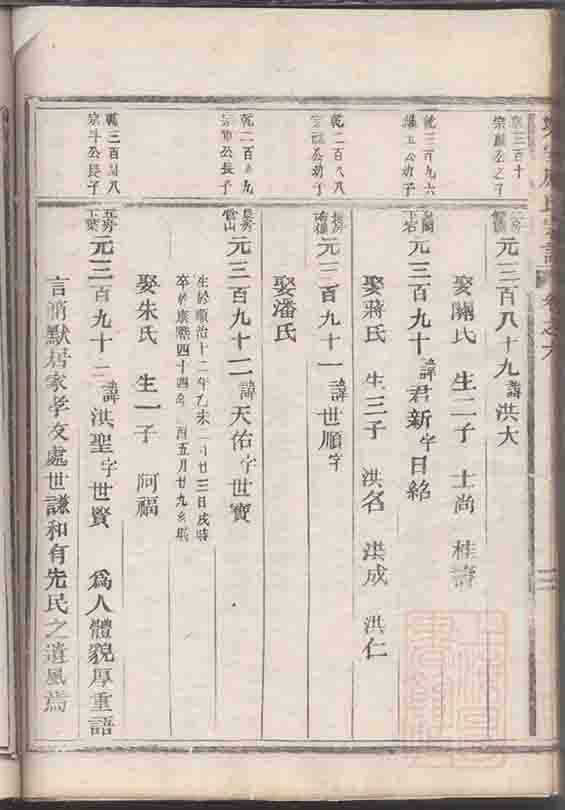 乾三百十
宗
元三百八十九諱洪大
娶關氏 生二子 士尚 桂壽
乾二百九六
玉公幼子
元三百九十諱君新字日紹
娶蔣氏 生三子 洪名 洪成 洪仁
乾二百八八
宗 公幼子
長房
元三百九十一諱世順字
娶潘氏
乾二百 九
宗 公長子
長房
元三百九十二諱天佑字世寶
生於順治十二年乙未二月廿三日戌時
卒於康熙四十四年 酉五月廿九亥時
娶朱氏 生一子 阿福
乾三百 八
宗斗公長子
五房
元三百九十三諱洪聖字世賢 為人體貌厚重語
言簡默居家孝友處世謙和有先民之遺風焉
氏宗譜
卷之六